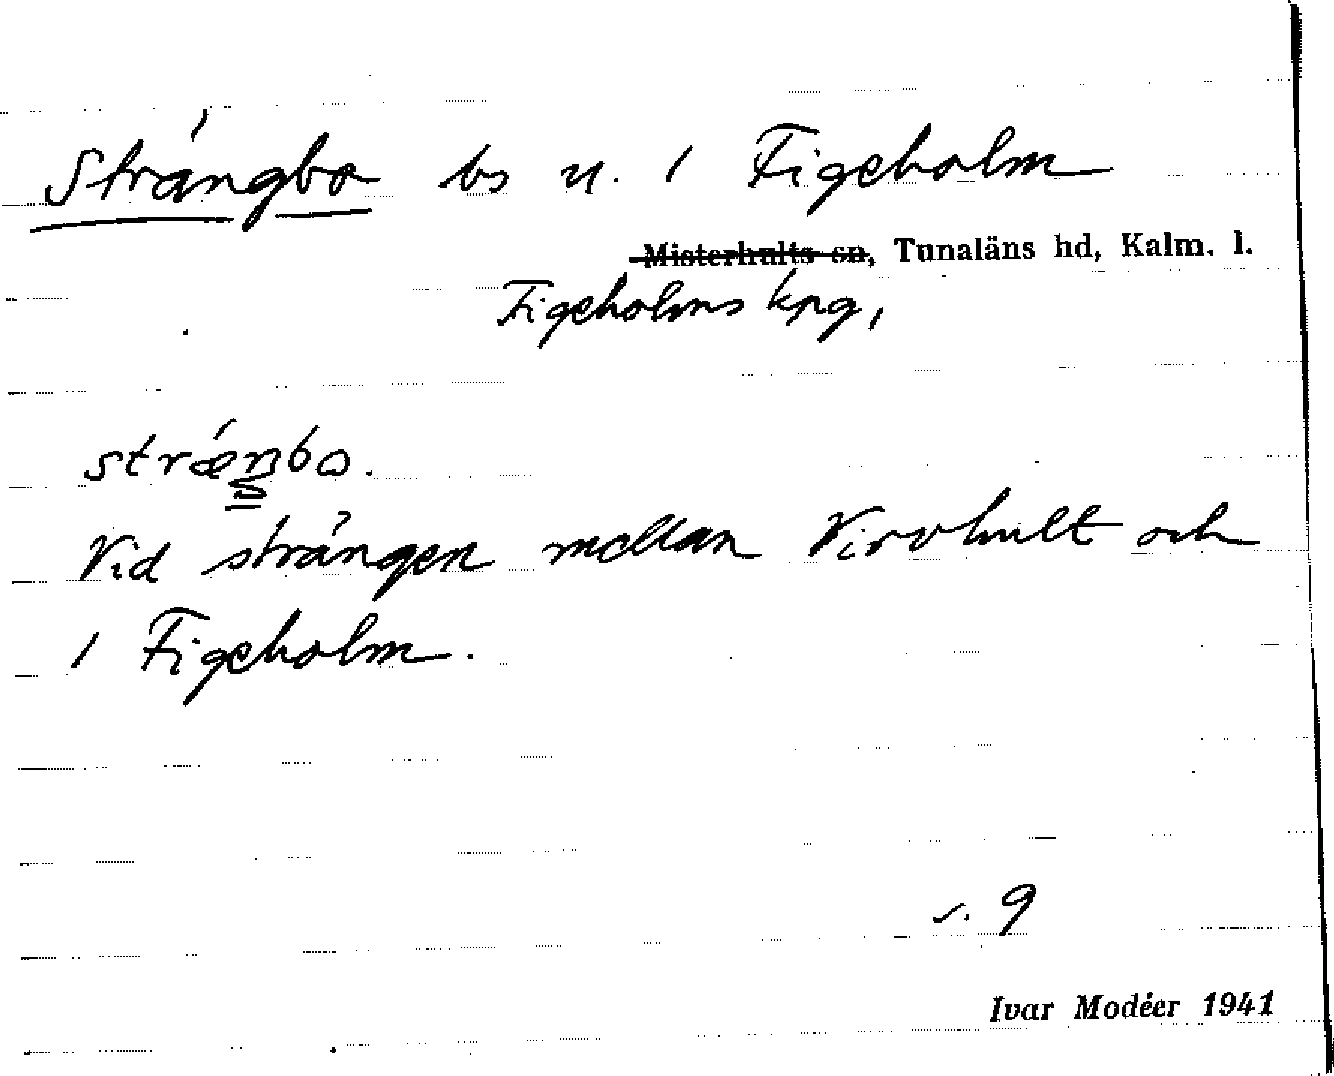 Strängbo bs u. 1 Figeholm
Misterhults sn, Tunaläns hd, Kalm. l.
Figeholms kpg,
strǽnbo.
Vid strängen mellan Virvhult och
1 Figeholm.
s. 9
Ivar Modéer 1941